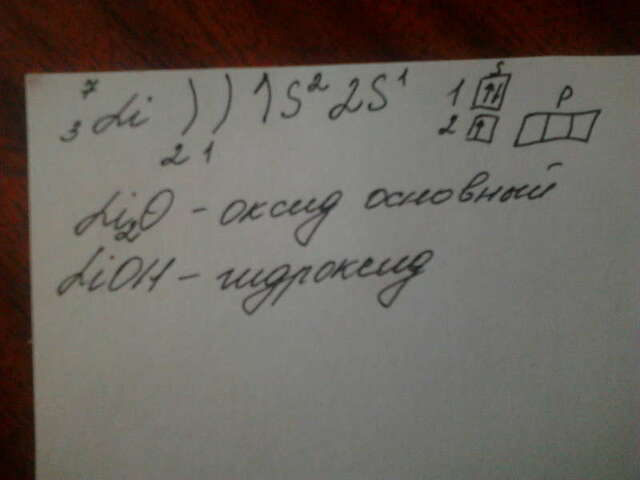 ⁷₃Li ) ) 1S² 2S¹ 1 ↑↓ S
2 1 2 ↑ P
Li₂O - оксид основный
LiOH - гидроксид